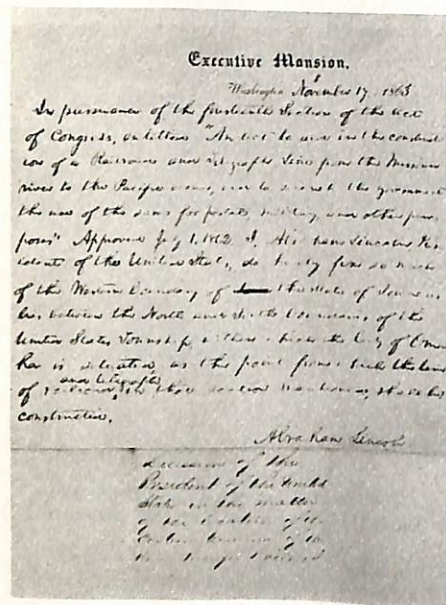 Executive Mansion,
Washington November 17, 1863
In pursuance of the fourteenth Section of the act
of Congress, entitled "An act to aid in the construct
ion of a Railroad and Telegraph Line from the Missouri
river to the Pacific ocean, and to secure to the government
the use of the same for postal, military, and other pur
poses" Approved July 1, 1862, I, Abraham Lincoln Pres
ident of the United States, do hereby fix so much
of the Western boundary of the State of Iowa as
lies between the North and South boundaries of the
United States Township, within which the City of Oma
ha is situated, as the point from which the line
of railroad and telegraph in that section mentioned, shall be
constructed.
Abraham Lincoln
Decision of the
President of the United
States in the matter
of the location of the
Eastern terminus of the